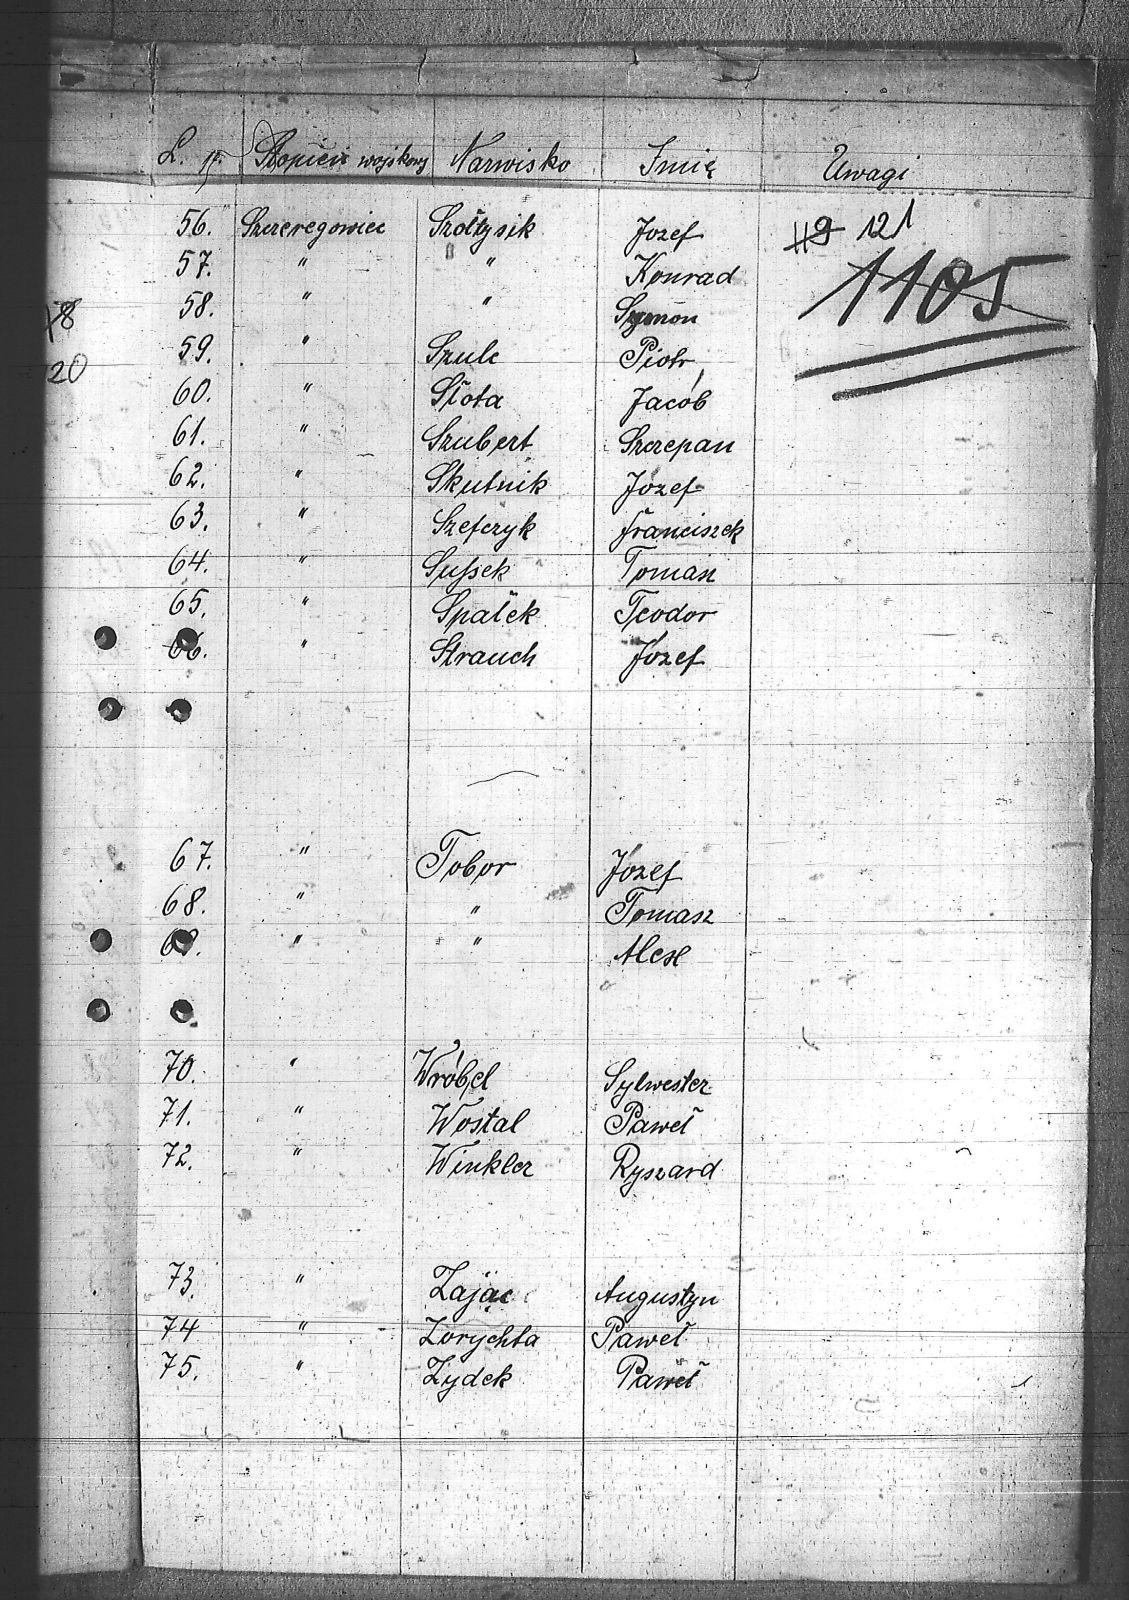 L. p. Stopień wojskowy Nazwisko Imię Uwagi
56. Szeregowiec Szołtysik Józef 119 121
57. " " Konrad 1105
58. " " Szymon
59. " Szulc Piotr
60. " Słota Jacób
61. " Szubert Szczepan
62. " Skutnik Józef
63. " Szefczyk Franciszek
64. " Sussek Tomasz
65. " Spałek Teodor
66. " Strauch Józef
67. " Tobor Józef
68. " " Tomasz
69. " "
70. " Wróbel Sylwester
71. " Wostal Paweł
72. " Winkler Ryszard
73. " Zając Augustyn
74 " Zorychta Paweł
75. " Zydek Paweł
20